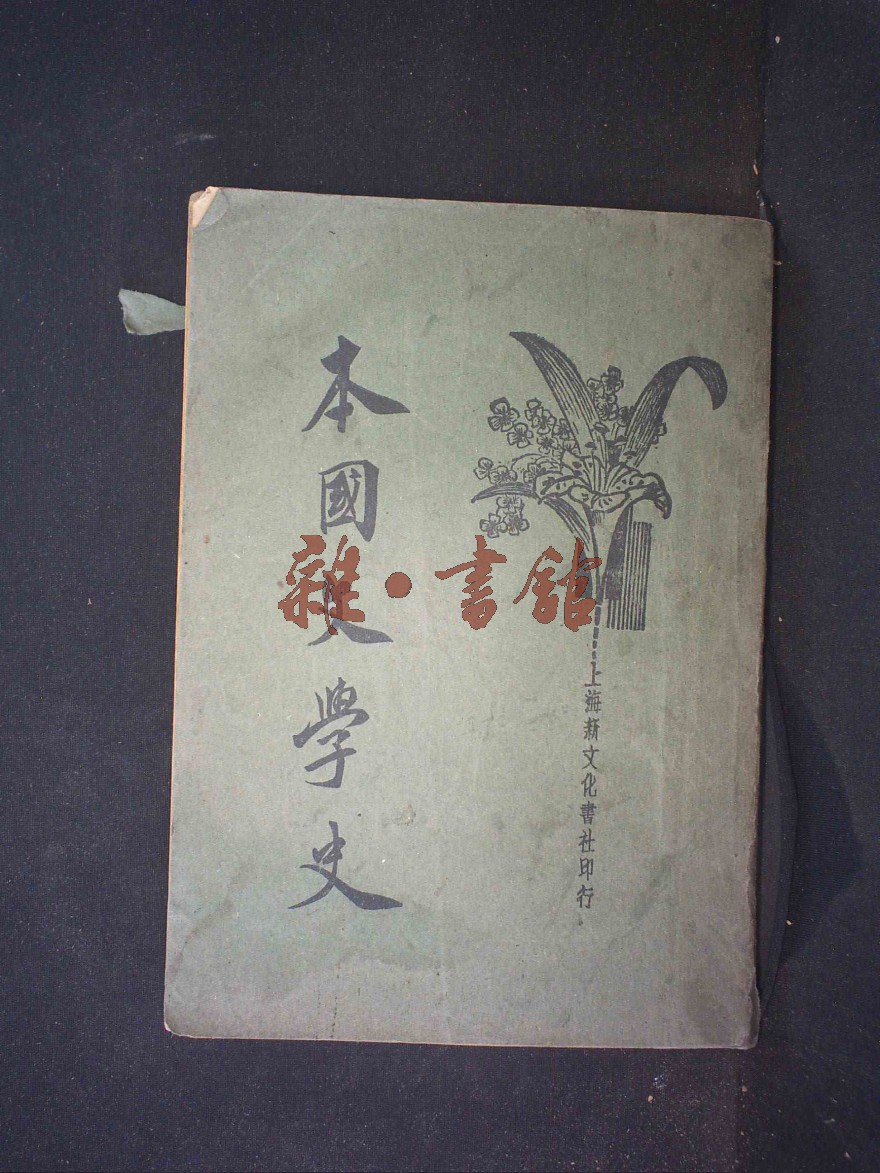 本國文學史
上海新文化書社印行
雜·書館